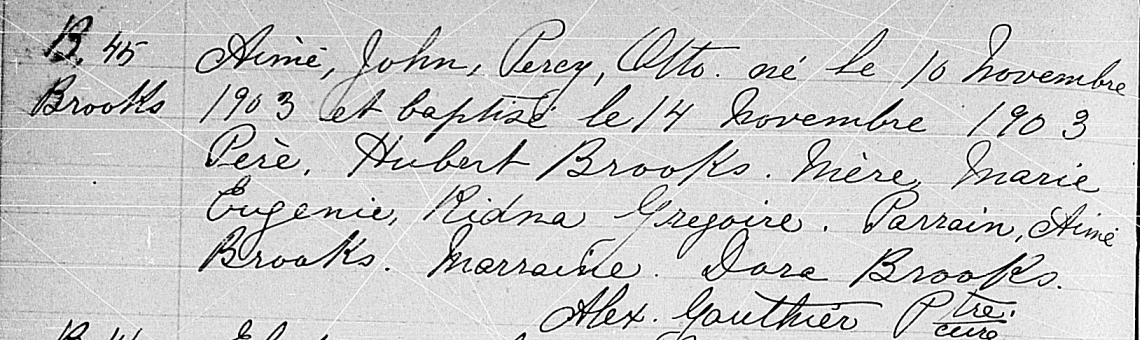 B. 45 Aimé, John, Percy, Otto. né le 10 Novembre
Brooks 1903 et baptisé le 14 Novembre 1903
Père, Hubert Brooks. Mère, Marie
Eugenie, Ridna Gregoire. Parrain, Aimé
Brooks. Marraine. Dora Brooks.
Alex. Gauthier Ptre.
curé